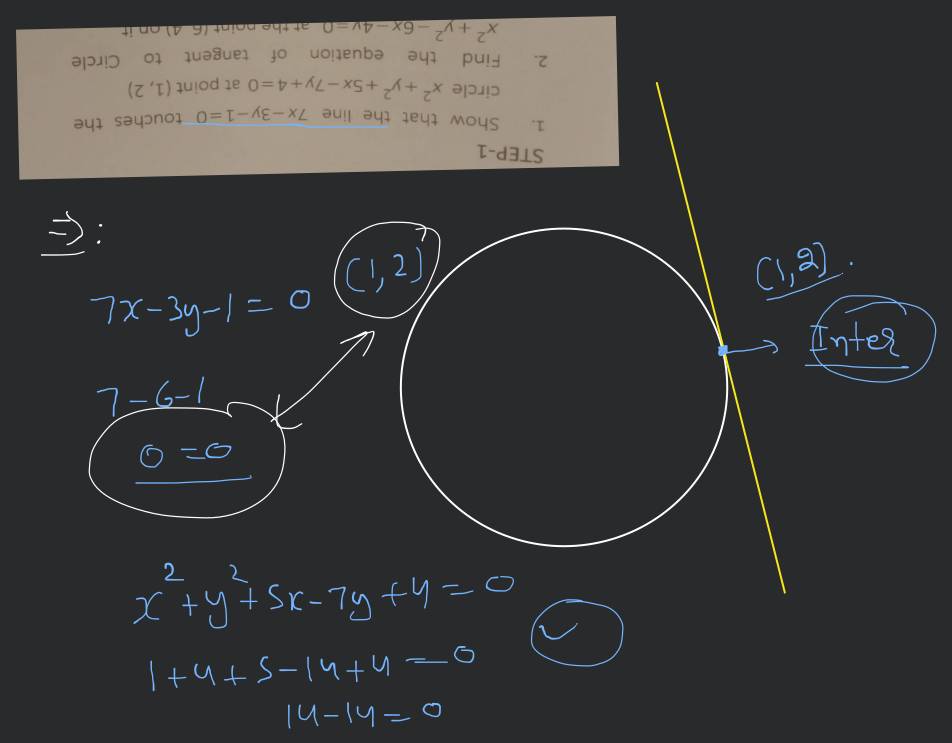 STEP-1
1. Show that the line 7x-3y-1=0 touches the
circle x²+y²+5x-7y+4=0 at point (1, 2)
2. Find the equation of tangent to Circle
x²+y²-6x-4y=0 at the point (6, 4) on it
⇒:
(1,2)
(1,2).
7x-3y-1=0
Inter
7-6-1
0=0
x²+y²+5x-7y+4=0
1+4+5-14+4=0
14-14=0